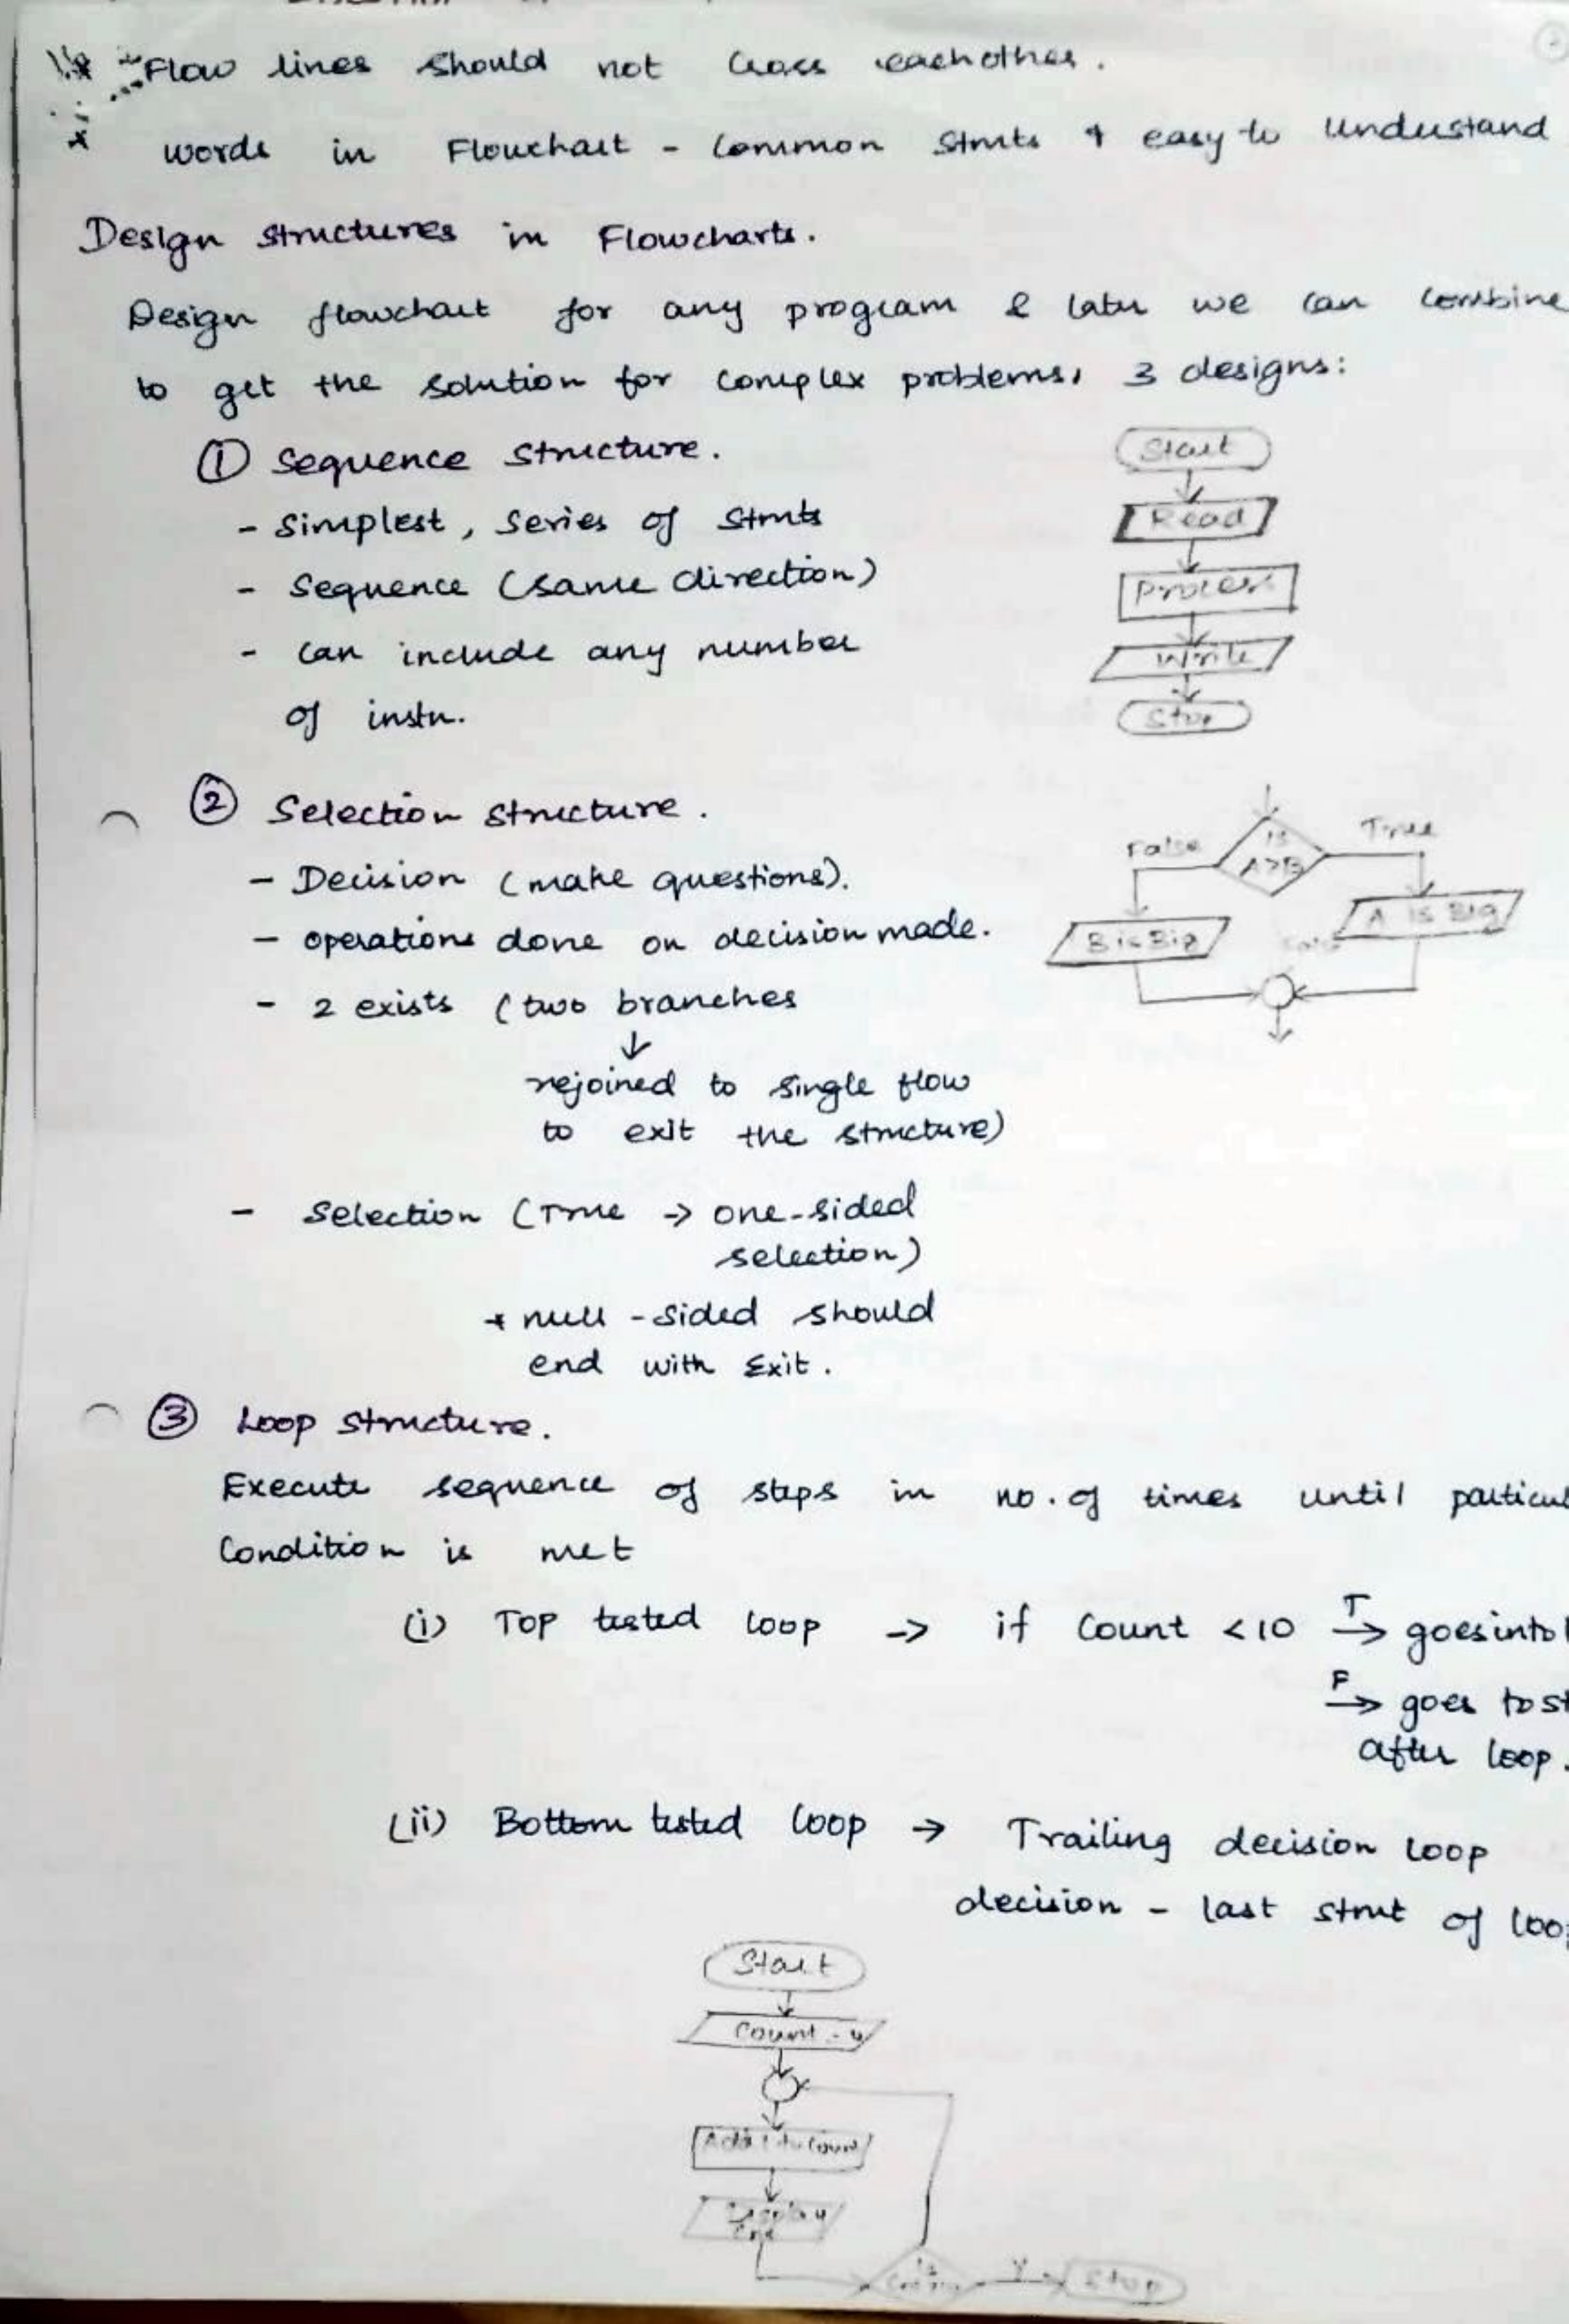 * Flow lines should not cross eachother.
* words in Flowchart - common stmts & easy to understand
Design structures in Flowcharts.
Design flowchart for any program & later we can combine
to get the solution for complex problems, 3 designs:
① Sequence structure.
- simplest, series of stmts
- sequence (same direction)
- can include any number
of instn.
Start
Read
Process
Write
Stop
② Selection structure.
- Decision (make questions).
- operations done on decision made.
- 2 exists (two branches
↓
rejoined to single flow
to exit the structure)
- Selection (True → one-sided
selection)
* null - sided should
end with Exit.
False
Is
A>B
True
B is Big
A is Big
③ Loop structure.
Execute sequence of steps in no. of times until particul
Condition is met
(i) Top tested loop → if Count <10 T→ goes into l
F→ goes to st
after loop.
(ii) Bottom tested loop → Trailing decision loop
decision - last stmt of loo
Start
Count
Add 1 to Count
Display
Is
Y
Stop